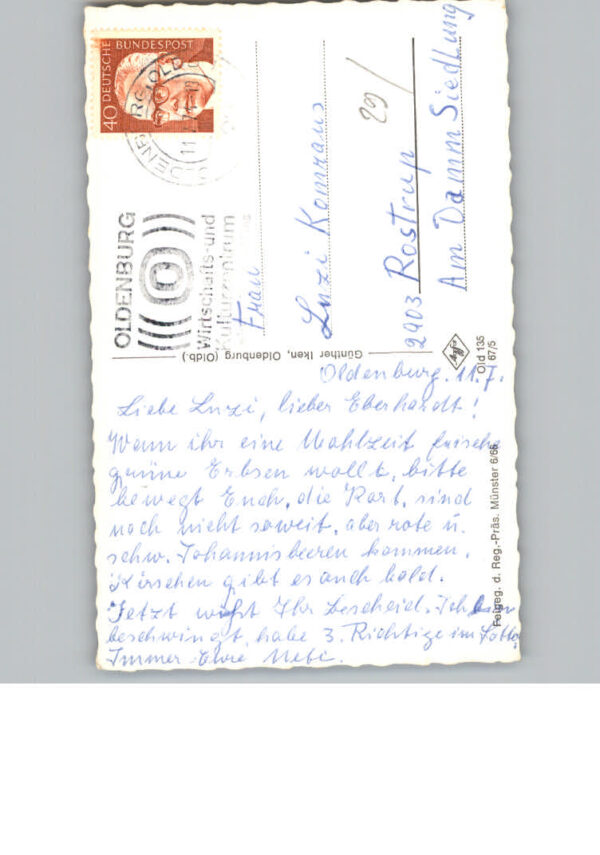 Oldenburg. 11.7.
Liebe Luzi, lieber Eberhardt!
Wenn ihr eine Mahlzeit frische
grüne Erbsen wollt, bitte
bewegt Euch, die Kart. sind
noch nicht soweit, aber rote u.
schw. Johannisbeeren kommen.
Kirschen gibt es auch bald.
Jetzt wißt Ihr Bescheid. Ich bin
beschwingt, habe 3. Richtige im Lotto.
Immer Eure
Frau
Luzi
2903 Rostrup
Am Damm Siedlung
29/
DEUTSCHE BUNDESPOST
40
OLDENBURG
Wirtschafts-und
Kulturzentrum
Günther Iken, Oldenburg (Oldb.)
Agfa
Old 135
67/5
Freigeg. d. Reg.-Präs. Münster 6/66